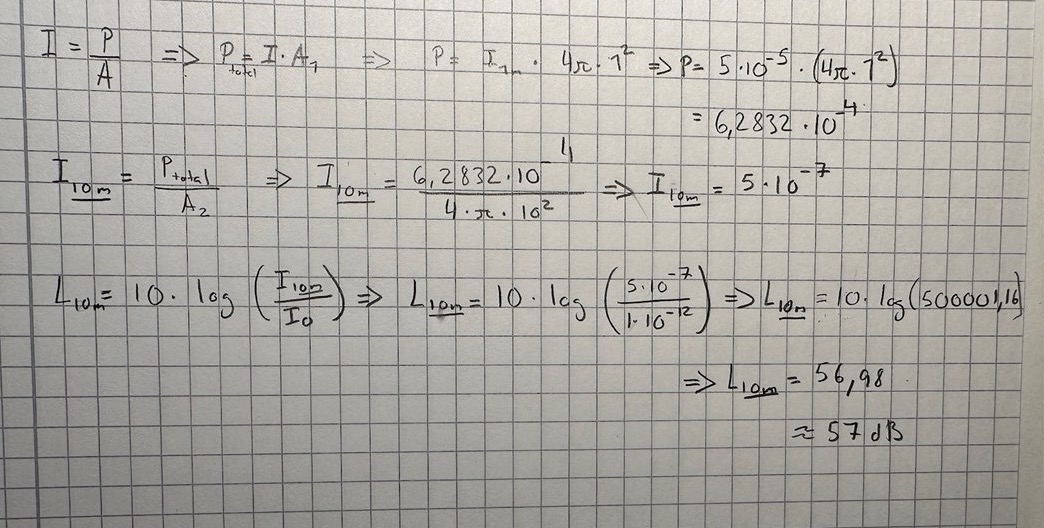 I = P/A => P_total = I · A_1 => P = I_1m · 4π · 1² => P = 5·10⁻⁵ · (4π · 1²)
= 6,2832 · 10⁻⁴
I_10m = P_total/A_2 => I_10m = 6,2832·10⁻⁴/4·π·10² => I_10m = 5·10⁻⁷
L_10m = 10 · log (I_10m/I_0) => L_10m = 10 · log (5·10⁻⁷/1·10⁻¹²) => L_10m = 10 · log(500001,16)
=> L_10m = 56,98
≈ 57 dB